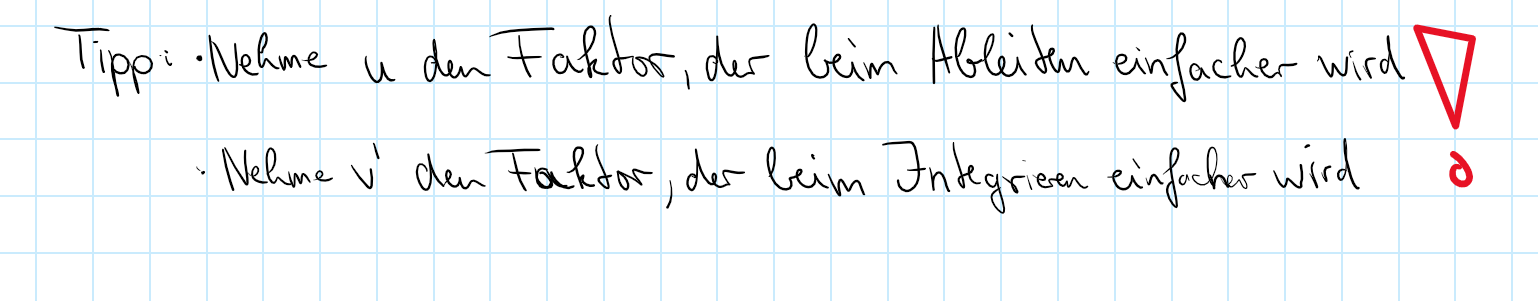 Tipp: · Nehme u den Faktor, der beim Ableiten einfacher wird !
· Nehme v' den Faktor, der beim Integrieren einfacher wird